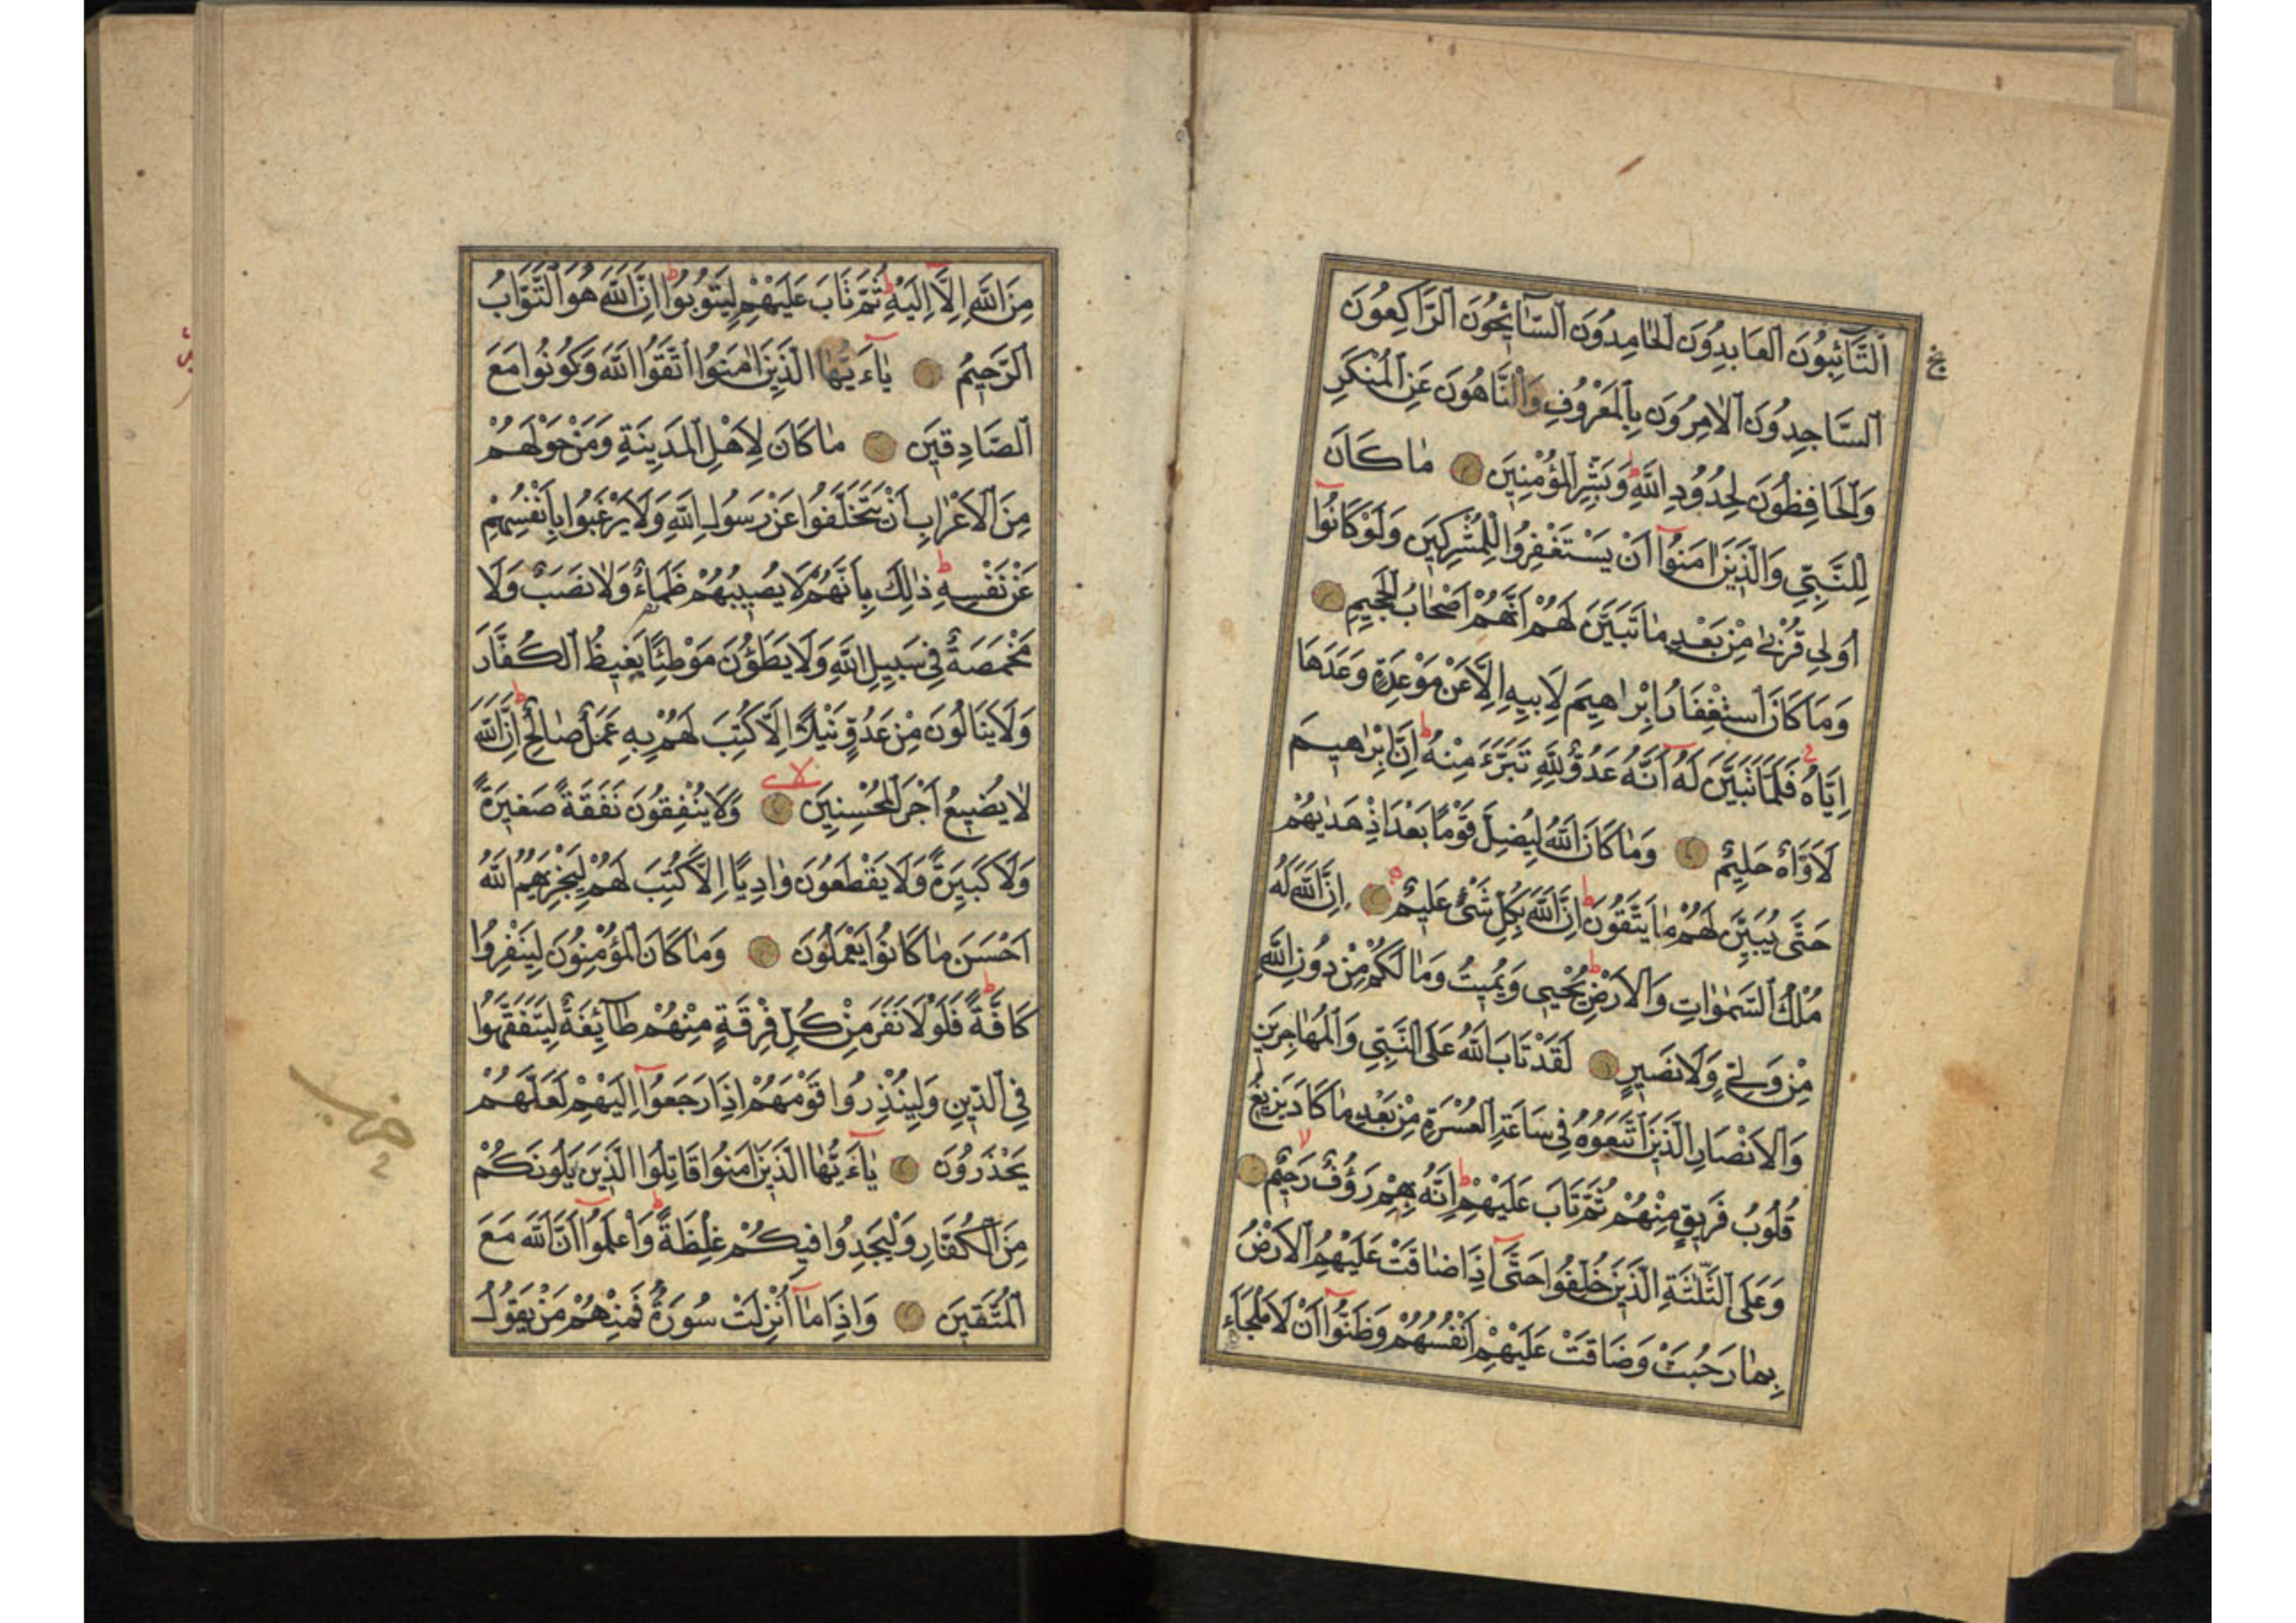 اَلتَّائِبُونَ الْعَابِدُونَ الْحَامِدُونَ السَّائِحُونَ الرَّاكِعُونَ
السَّاجِدُونَ الْاٰمِرُونَ بِالْمَعْرُوفِ وَالنَّاهُونَ عَنِ الْمُنْكَرِ
وَالْحَافِظُونَ لِحُدُودِ اللّٰهِ ط وَبَشِّرِ الْمُؤْمِنِينَ مَا كَانَ
لِلنَّبِيِّ وَالَّذِينَ اٰمَنُوا اَنْ يَسْتَغْفِرُوا لِلْمُشْرِكِينَ وَلَوْ كَانُوا
اُولِي قُرْبٰى مِنْ بَعْدِ مَا تَبَيَّنَ لَهُمْ اَنَّهُمْ اَصْحَابُ الْجَحِيمِ
وَمَا كَانَ اسْتِغْفَارُ اِبْرٰهِيمَ لِاَبِيهِ اِلَّا عَنْ مَوْعِدَةٍ وَعَدَهَا
اِيَّاهُ فَلَمَّا تَبَيَّنَ لَهُ اَنَّهُ عَدُوٌّ لِلّٰهِ تَبَرَّءَ مِنْهُ ط اِنَّ اِبْرٰهِيمَ
لَاَوَّاهٌ حَلِيمٌ وَمَا كَانَ اللّٰهُ لِيُضِلَّ قَوْمًا بَعْدَ اِذْ هَدٰيهُمْ
حَتّٰى يُبَيِّنَ لَهُمْ مَا يَتَّقُونَ ط اِنَّ اللّٰهَ بِكُلِّ شَيْءٍ عَلِيمٌ اِنَّ اللّٰهَ لَهُ
مُلْكُ السَّمٰوَاتِ وَالْاَرْضِ ط يُحْيِي وَيُمِيتُ وَمَا لَكُمْ مِنْ دُونِ اللّٰهِ
مِنْ وَلِيٍّ وَلَا نَصِيرٍ لَقَدْ تَابَ اللّٰهُ عَلَى النَّبِيِّ وَالْمُهَاجِرِينَ
وَالْاَنْصَارِ الَّذِينَ اتَّبَعُوهُ فِي سَاعَةِ الْعُسْرَةِ مِنْ بَعْدِ مَا كَادَ يَزِيغُ
قُلُوبُ فَرِيقٍ مِنْهُمْ ثُمَّ تَابَ عَلَيْهِمْ ط اِنَّهُ بِهِمْ رَؤُفٌ رَحِيمٌ لا
وَعَلَى الثَّلٰثَةِ الَّذِينَ خُلِّفُوا حَتّٰى اِذَا ضَاقَتْ عَلَيْهِمُ الْاَرْضُ
بِمَا رَحُبَتْ وَضَاقَتْ عَلَيْهِمْ اَنْفُسُهُمْ وَظَنُّوا اَنْ لَا مَلْجَاَءَ
مِنَ اللّٰهِ اِلَّا اِلَيْهِ ط ثُمَّ تَابَ عَلَيْهِمْ لِيَتُوبُوا ط اِنَّ اللّٰهَ هُوَ التَّوَّابُ
الرَّحِيمُ يَاءَيُّهَا الَّذِينَ اٰمَنُوا اتَّقُوا اللّٰهَ وَكُونُوا مَعَ
الصَّادِقِينَ مَا كَانَ لِاَهْلِ الْمَدِينَةِ وَمَنْ حَوْلَهُمْ
مِنَ الْاَعْرَابِ اَنْ يَتَخَلَّفُوا عَنْ رَسُولِ اللّٰهِ وَلَا يَرْغَبُوا بِاَنْفُسِهِمْ
عَنْ نَفْسِهِ ط ذٰلِكَ بِاَنَّهُمْ لَا يُصِيبُهُمْ ظَمَاءٌ وَلَا نَصَبٌ وَلَا
مَخْمَصَةٌ فِي سَبِيلِ اللّٰهِ وَلَا يَطَؤُنَ مَوْطِئًا يَغِيظُ الْكُفَّارَ
وَلَا يَنَالُونَ مِنْ عَدُوٍّ نَيْلًا اِلَّا كُتِبَ لَهُمْ بِهِ عَمَلٌ صَالِحٌ ط اِنَّ اللّٰهَ
لَا يُضِيعُ اَجْرَ الْمُحْسِنِينَ لا وَلَا يُنْفِقُونَ نَفَقَةً صَغِيرَةً
وَلَا كَبِيرَةً وَلَا يَقْطَعُونَ وَادِيًا اِلَّا كُتِبَ لَهُمْ لِيَجْزِيَهُمُ اللّٰهُ
اَحْسَنَ مَا كَانُوا يَعْمَلُونَ وَمَا كَانَ الْمُؤْمِنُونَ لِيَنْفِرُوا
كَافَّةً ط فَلَوْلَا نَفَرَ مِنْ كُلِّ فِرْقَةٍ مِنْهُمْ طَائِفَةٌ لِيَتَفَقَّهُوا
فِي الدِّينِ وَلِيُنْذِرُوا قَوْمَهُمْ اِذَا رَجَعُوا اِلَيْهِمْ لَعَلَّهُمْ
يَحْذَرُونَ يَاءَيُّهَا الَّذِينَ اٰمَنُوا قَاتِلُوا الَّذِينَ يَلُونَكُمْ
مِنَ الْكُفَّارِ وَلْيَجِدُوا فِيكُمْ غِلْظَةً ط وَاعْلَمُوا اَنَّ اللّٰهَ مَعَ
الْمُتَّقِينَ وَاِذَا مَا اُنْزِلَتْ سُورَةٌ فَمِنْهُمْ مَنْ يَقُولُ
حزب